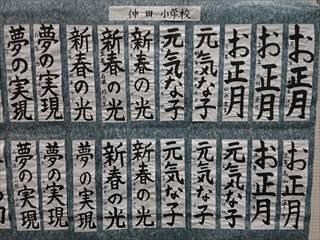 仲田小学校
お正月
お正月
お正月
元気な子
元気な子
新春の光
新春の光
新春の光
夢の実現
夢の実現
お正月
お正月
元気な子
元気な子
元気な子
新春の光
新春の光
夢の実現
夢の実現
夢の実現